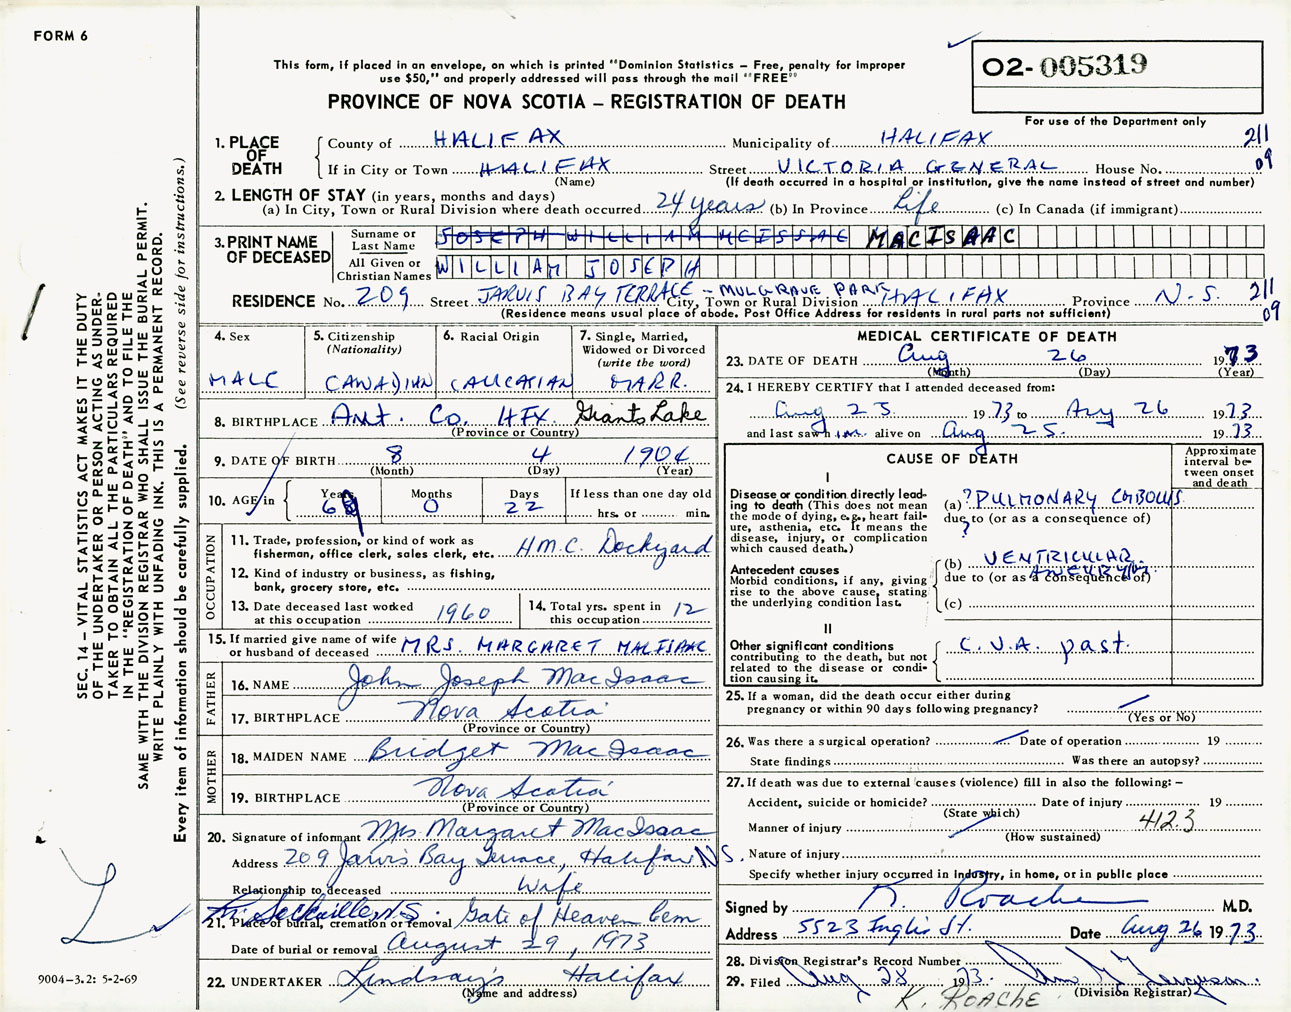 FORM 6
This form, if placed in an envelope, on which is printed "Dominion Statistics – Free, penalty for improper
use $50," and properly addressed will pass through the mail "FREE"
O2-005319
PROVINCE OF NOVA SCOTIA – REGISTRATION OF DEATH
For use of the Department only
1. PLACE OF DEATH
County of HALIFAX Municipality of HALIFAX 211
If in City or Town HALIFAX Street VICTORIA GENERAL House No. 09
(Name) (If death occurred in a hospital or institution, give the name instead of street and number)
2. LENGTH OF STAY (in years, months and days)
(a) In City, Town or Rural Division where death occurred 24 years (b) In Province Life (c) In Canada (if immigrant)
3. PRINT NAME OF DECEASED
Surname or Last Name JOSEPH WILLIAM MCISSAC MACISAAC
All Given or Christian Names WILLIAM JOSEPH
RESIDENCE No. 209 Street JARVIS BAY TERRACE – MULGRAVE PARK City, Town or Rural Division HALIFAX Province N.S. 211
09
(Residence means usual place of abode. Post Office Address for residents in rural parts not sufficient)
4. Sex
MALE
5. Citizenship
(Nationality)
CANADIAN
6. Racial Origin
CAUCASIAN
7. Single, Married,
Widowed or Divorced
(write the word)
MARR.
8. BIRTHPLACE Ant. Co. HFX. Giants Lake
(Province or Country)
9. DATE OF BIRTH 8 4 1904
(Month) (Day) (Year)
10. AGE in
Years Months Days If less than one day old
69 0 22 hrs. or min.
OCCUPATION
11. Trade, profession, or kind of work as
fisherman, office clerk, sales clerk, etc. H.M.C. Dockyard
12. Kind of industry or business, as fishing,
bank, grocery store, etc.
13. Date deceased last worked
at this occupation 1960
14. Total yrs. spent in
this occupation 12
15. If married give name of wife
or husband of deceased MRS. MARGARET MACISAAC
FATHER
16. NAME John Joseph MacIsaac
17. BIRTHPLACE Nova Scotia
(Province or Country)
MOTHER
18. MAIDEN NAME Bridget MacIsaac
19. BIRTHPLACE Nova Scotia
(Province or Country)
20. Signature of informant Mrs Margaret MacIsaac
Address 209 Jarvis Bay Terrace, Halifax N.S.
Relationship to deceased Wife
Sackville N.S.
21. Place of burial, cremation or removal Gate of Heaven Cem
Date of burial or removal August 29, 1973
22. UNDERTAKER Lindsay's Halifax
(Name and address)
MEDICAL CERTIFICATE OF DEATH
23. DATE OF DEATH Aug 26 1973
(Month) (Day) (Year)
24. I HEREBY CERTIFY that I attended deceased from:
Aug 25 1973 to Aug 26 1973
and last saw him alive on Aug 25. 1973
CAUSE OF DEATH
Approximate
interval be-
tween onset
and death
I
Disease or condition directly lead-
ing to death (This does not mean
the mode of dying, e.g., heart fail-
ure, asthenia, etc. It means the
disease, injury, or complication
which caused death.)
(a) ? PULMONARY EMBOLUS
due to (or as a consequence of)
?
Antecedent causes
Morbid conditions, if any, giving
rise to the above cause, stating
the underlying condition last.
(b) VENTRICULAR
ANEURYSM
due to (or as a consequence of)
(c)
II
Other significant conditions
contributing to the death, but not
related to the disease or condi-
tion causing it.
C.V.A. past.
25. If a woman, did the death occur either during
pregnancy or within 90 days following pregnancy?
(Yes or No)
26. Was there a surgical operation? Date of operation 19
State findings Was there an autopsy?
27. If death was due to external causes (violence) fill in also the following: –
Accident, suicide or homicide? Date of injury 19
(State which)
Manner of injury 412.3
(How sustained)
Nature of injury
Specify whether injury occurred in Industry, in home, or in public place
Signed by K. Roache M.D.
Address 5523 Inglis St. Date Aug 26 1973
28. Division Registrar's Record Number
29. Filed Aug 28 1973.
(Division Registrar)
K. ROACHE
SEC. 14 – VITAL STATISTICS ACT MAKES IT THE DUTY
OF THE UNDERTAKER OR PERSON ACTING AS UNDER-
TAKER TO OBTAIN ALL THE PARTICULARS REQUIRED
IN THE "REGISTRATION OF DEATH" AND TO FILE THE
SAME WITH THE DIVISION REGISTRAR WHO SHALL ISSUE THE BURIAL PERMIT.
WRITE PLAINLY WITH UNFADING INK. THIS IS A PERMANENT RECORD.
Every item of information should be carefully supplied. (See reverse side for instructions.)
9004–3.2: 5-2-69